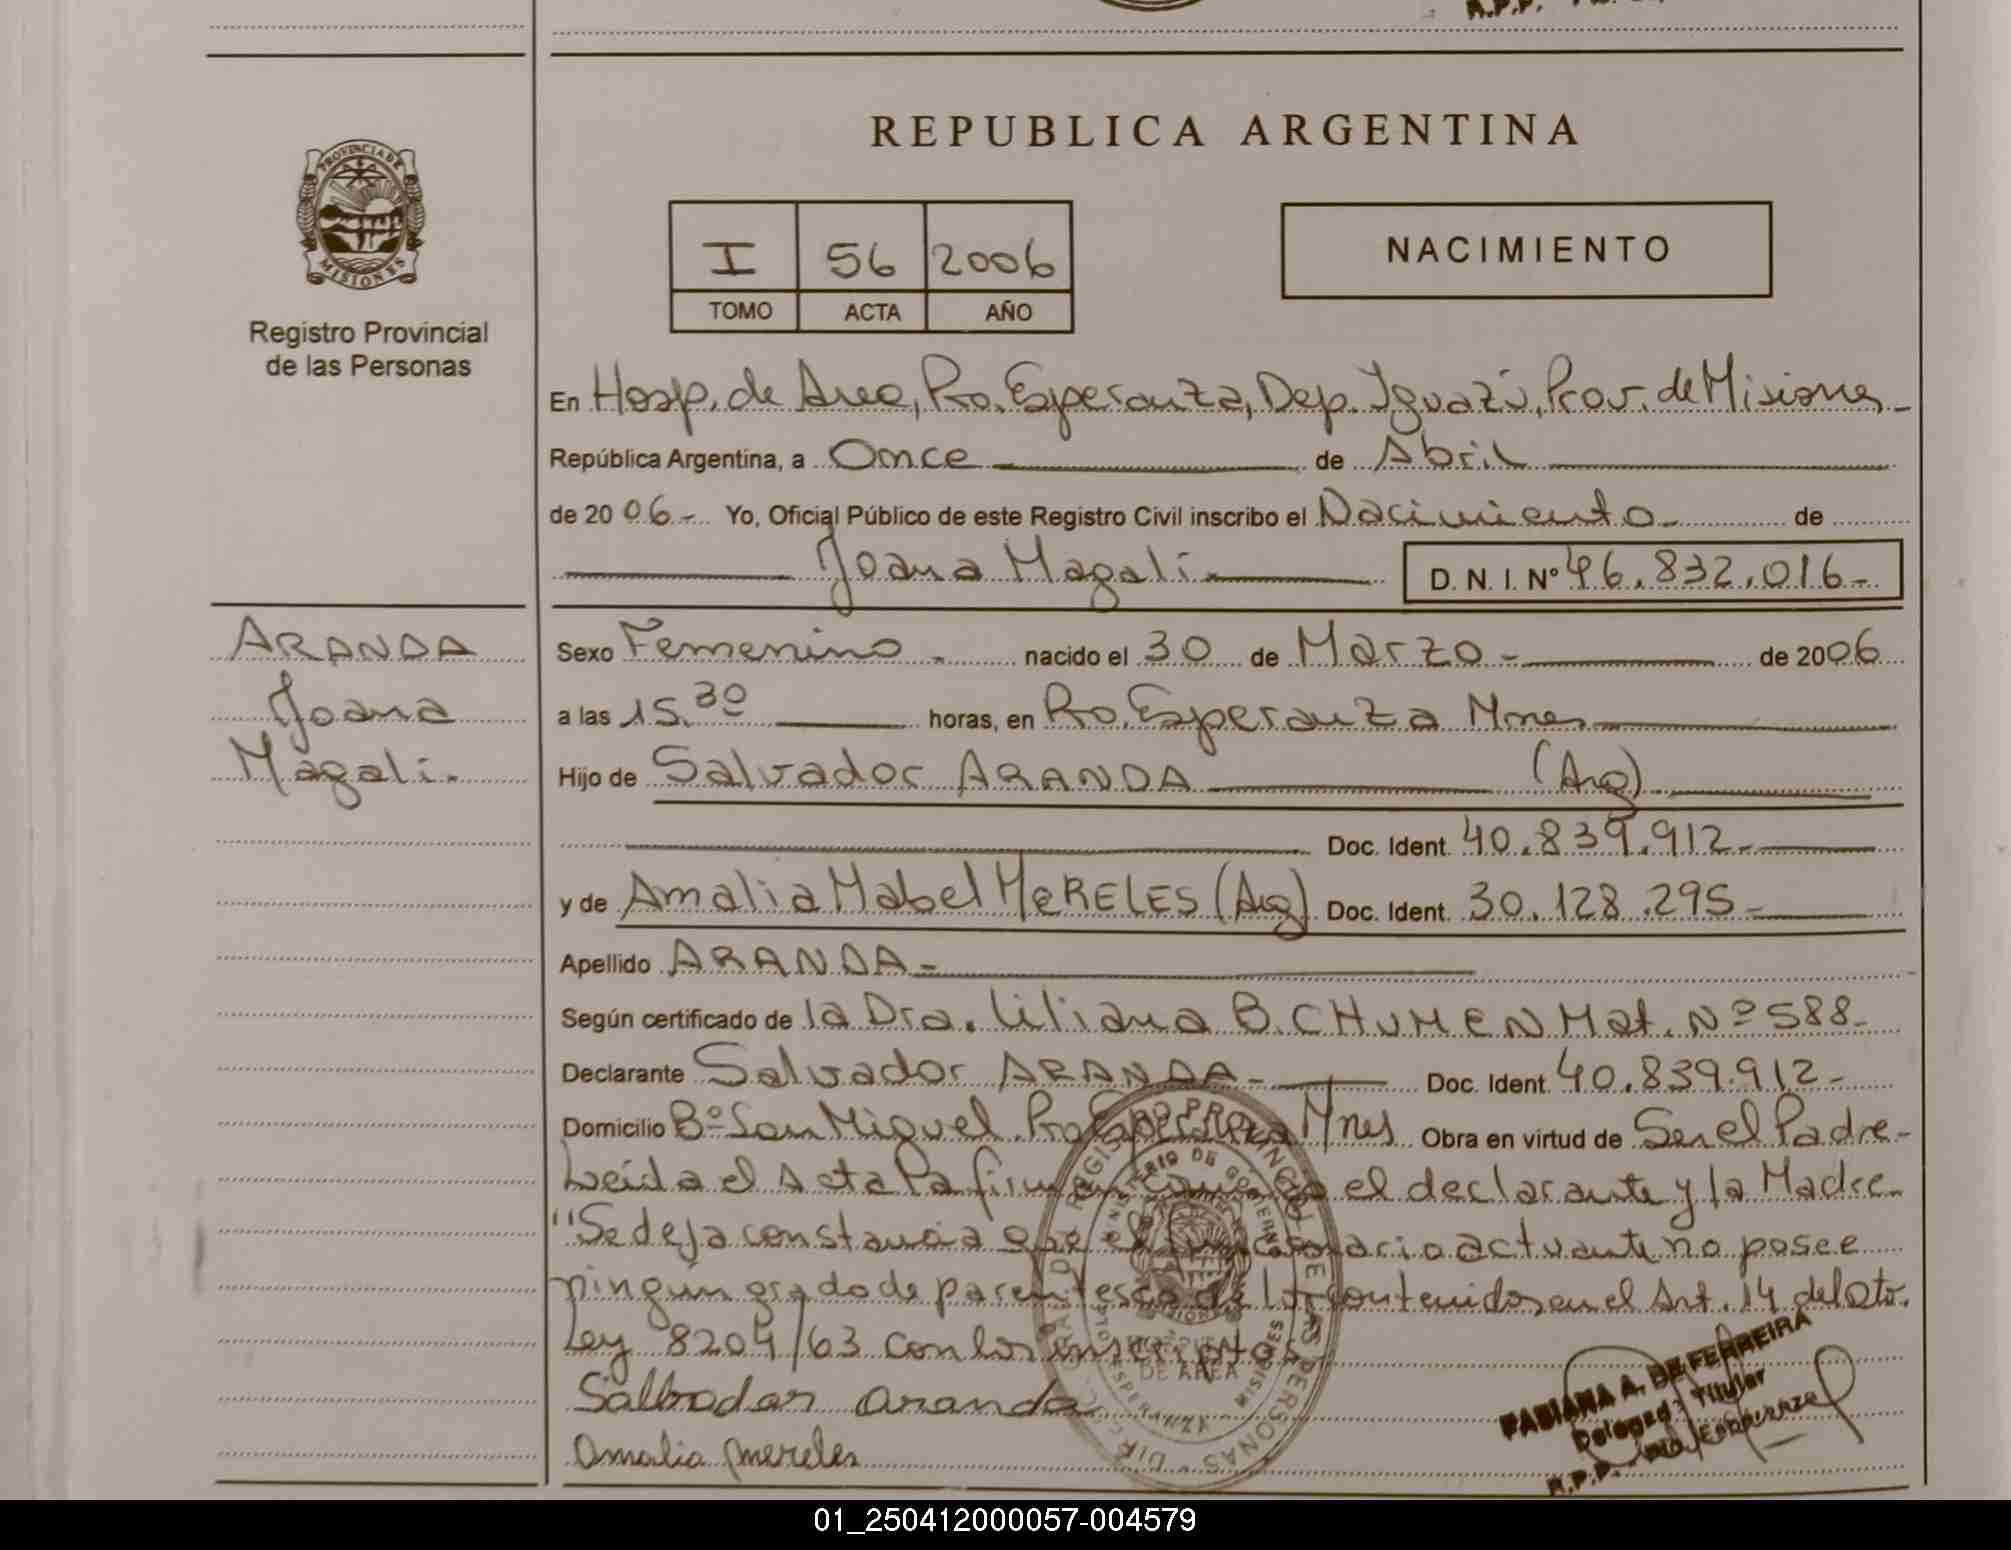 R.P.P.
REPUBLICA ARGENTINA
PROVINCIA DE
MISIONES
Registro Provincial
de las Personas
I 56 2006
TOMO ACTA AÑO
NACIMIENTO
En Hosp. de Area, Pto. Esperanza, Dep. Iguazú, Prov. de Misiones
República Argentina, a Once de Abril
de 2006.- Yo, Oficial Público de este Registro Civil inscribo el Nacimiento de
Joana Magali.- D. N. I. Nº 46.832.016-
ARANDA
Joana
Magali.
Sexo Femenino. nacido el 30 de Marzo - de 2006
a las 15.30 horas, en Pto. Esperanza Mnes
Hijo de Salvador ARANDA (Arg)
Doc. Ident. 40.839.912-
y de Amalia Mabel MeRELES (Arg) Doc. Ident. 30.128.295-
Apellido ARANDA-
Según certificado de la Dra. Liliana B. CHUMEN Mat. Nº 588-
Declarante Salvador ARANDA- Doc. Ident. 40.839.912-
Domicilio Bº San Miguel Pto Esperanza Mnes Obra en virtud de Ser el Padre-
Leída el Acta la firman conmigo el declarante y la Madre-
"Se deja constancia que el funcionario actuante no posee
ningún grado de parentesco de los contenidos en el Art. 14 del Dto.
Ley 8204/63 con los inscriptos
Salbador aranda
amalia mereles
DIRECC. GRAL. DE REGISTRO PROVINCIAL DE LAS PERSONAS
MINISTERIO DE GOBIERNO
DE AREA
FABIANA A. DE FERREIRA
Delegada Titular
R.P.P. Pto. Esperanza
01_250412000057-004579